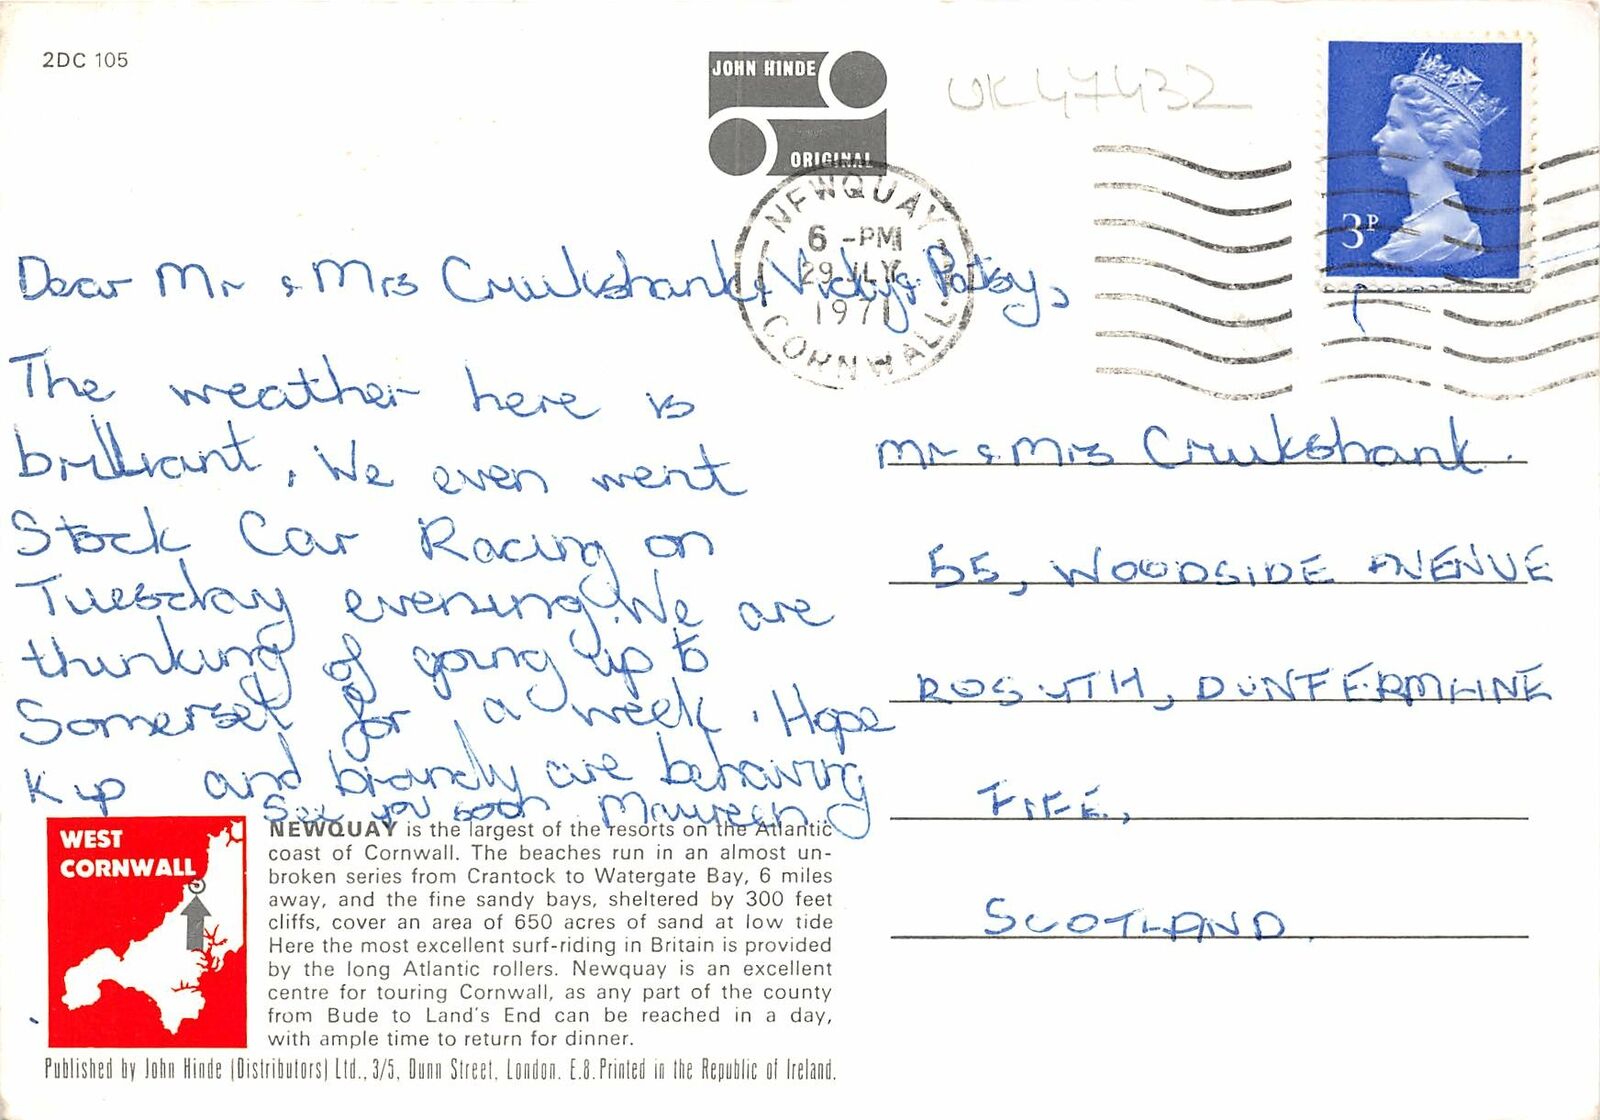 2DC 105
JOHN HINDE
ORIGINAL
UK47432
3P
NEWQUAY
6 -PM
29 JLY
1971
CORNWALL
Dear Mr & Mrs Cruikshank, Vicky & Patsy,
The weather here is
brilliant, We even went
Stock Car Racing on
Tuesday evening. We are
thinking of going up to
Somerset for a week. Hope
Kip and brandy are behaving
See you soon Maureen
Mr & Mrs Cruikshank.
55, WOODSIDE AVENUE
ROSYTH, DUNFERMLINE
FIFE,
SCOTLAND.
WEST
CORNWALL
NEWQUAY is the largest of the resorts on the Atlantic
coast of Cornwall. The beaches run in an almost un-
broken series from Crantock to Watergate Bay, 6 miles
away, and the fine sandy bays, sheltered by 300 feet
cliffs, cover an area of 650 acres of sand at low tide
Here the most excellent surf-riding in Britain is provided
by the long Atlantic rollers. Newquay is an excellent
centre for touring Cornwall, as any part of the county
from Bude to Land's End can be reached in a day,
with ample time to return for dinner.
Published by John Hinde (Distributors) Ltd., 3/5, Dunn Street, London. E.8. Printed in the Republic of Ireland.